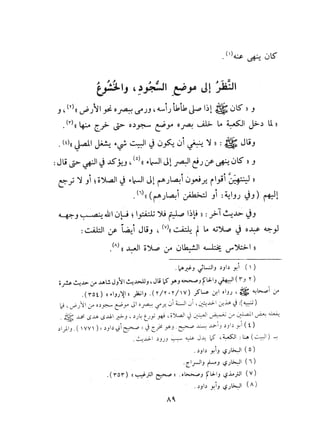 كان ينهى عنه(١).
النَّظَرُ إلى موضع السُّجُودِ، والخُشُوعُ
و « كان ﷺ إذا صلى طأطأ رأسه، ورمى ببصره نحو الأرض »(٢)، و
« لما دخل الكعبة ما خلف بصره موضع سجوده حتى خرج منها »(٣).
وقال ﷺ: « لا ينبغي أن يكون في البيت شيء يشغل المصلي »(٤).
و « كان ينهى عن رفع البصر إلى السماء »(٥)، ويؤكد في النهي حتى قال:
« لينتهين أقوام يرفعون أبصارهم إلى السماء في الصلاة؛ أو لا ترجع
إليهم (وفي رواية: أو لتخطفن أبصارهم) »(٦).
وفي حديث آخر: « فإذا صليتم فلا تلتفتوا؛ فإن الله ينصب وجهه
لوجه عبده في صلاته ما لم يلتفت »(٧)، وقال أيضاً عن التلفت:
« اختلاس يختلسه الشيطان من صلاة العبد »(٨).
(١) أبو داود والنسائي وغيرهما.
(٢ و٣) البيهقي والحاكم وصححه وهو كما قال، وللحديث الأول شاهد من حديث عشرة
من أصحابه ﷺ، رواه ابن عساكر (١٧/٢٠٢/٢). وانظر « الإرواء » (٣٥٤).
(تنبيه): في هذين الحديثين، أن السنة أن يرمي ببصره إلى موضع سجوده من الأرض، فما
يفعله بعض المصلين من تغميض العينين في الصلاة، فهو تورع بارد، وخير الهدى هدى محمد ﷺ.
(٤) أبو داود وأحمد بسند صحيح. وهو مخرج في « صحيح أبي داود » (١٧٧١). والمراد
بـ (البيت) هنا: الكعبة، كما يدل عليه سبب ورود الحديث.
(٥) البخاري وأبو داود.
(٦) البخاري ومسلم والسراج.
(٧) الترمذي والحاكم وصححاه. « صحيح الترغيب » (٣٥٣).
(٨) البخاري وأبو داود.
٨٩